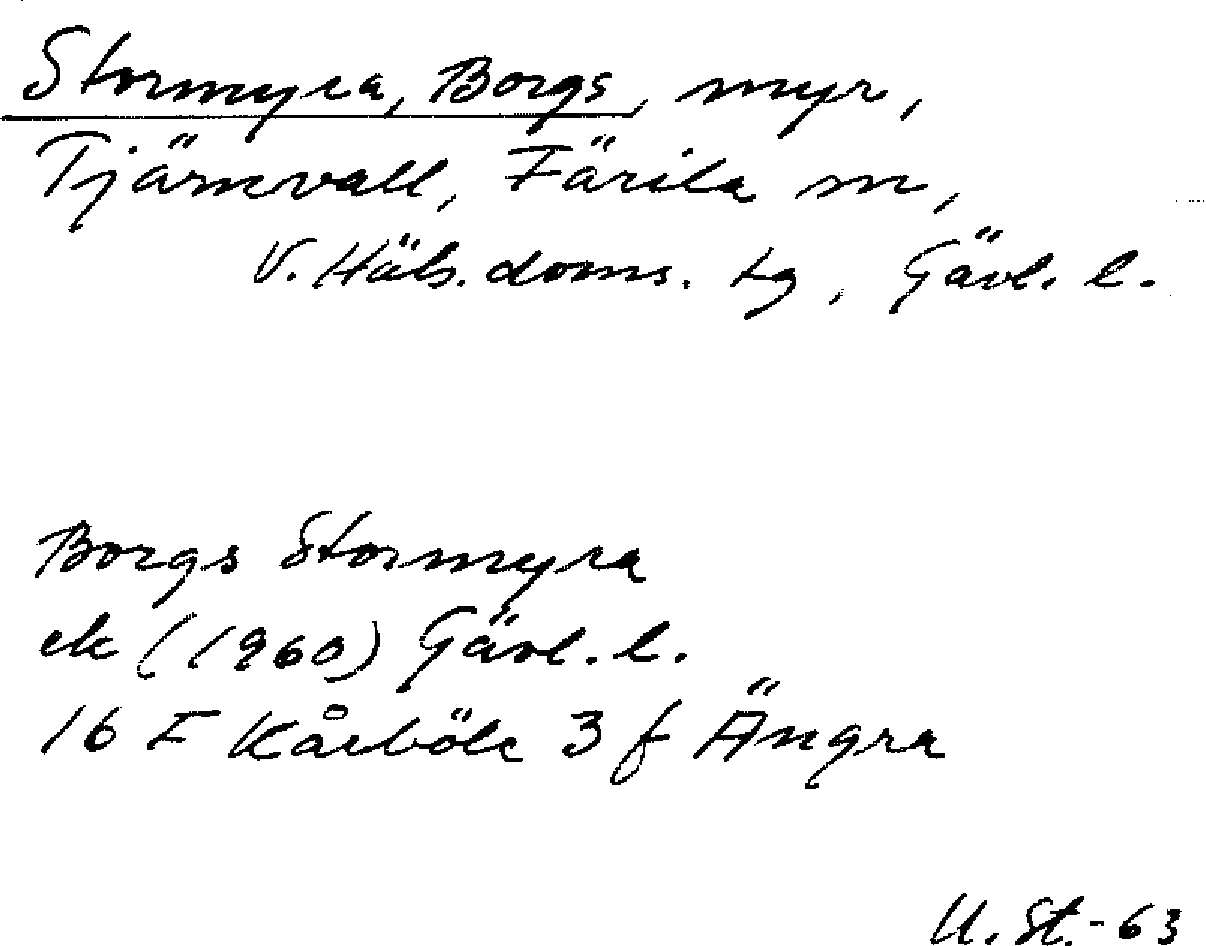 Stormyra, Borgs, myr,
Tjärnvall, Färila sn,
V. Häls. doms. tg, Gävl. l.
Borgs Stormyra
ek (1960) Gävl. l.
16 F Kårböle 3 f Ängra
U. St. - 63